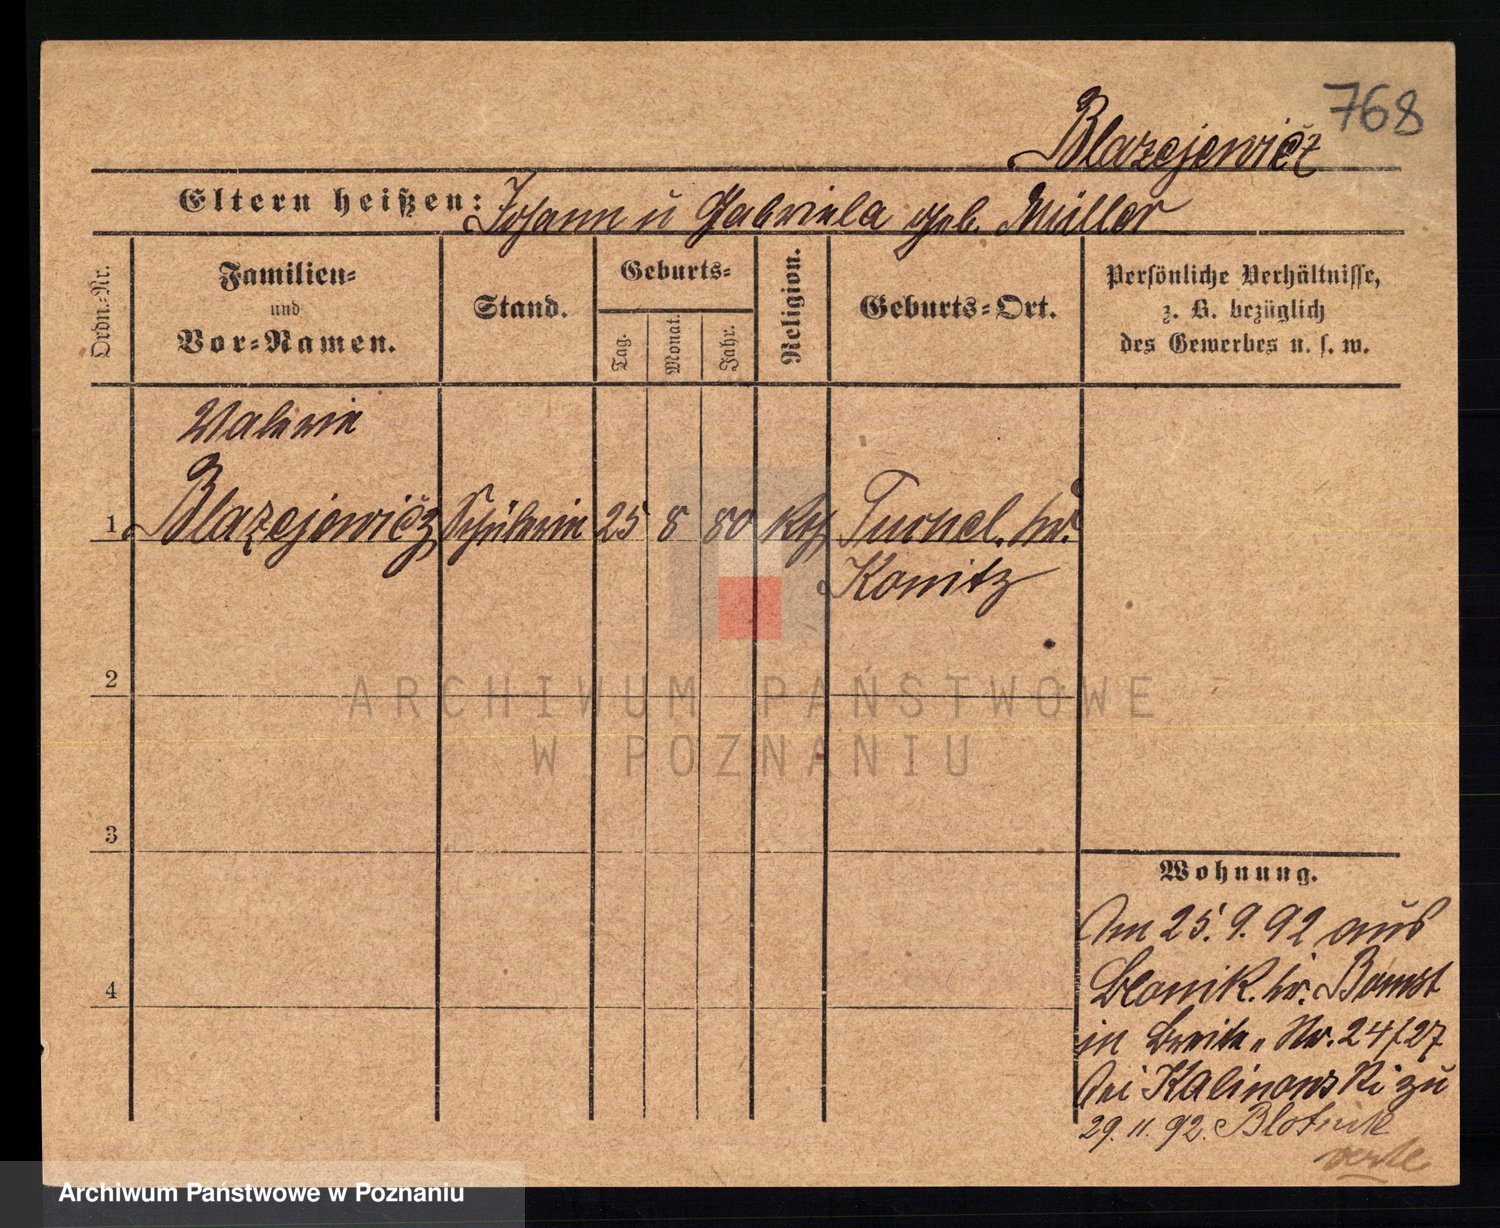 768
Blazejewicz
Eltern heißen: Johann u Gabriela geb. Müller
Ordn.-Nr.
Familien-
und
Vor-Namen.
Stand.
Geburts-
Tag.
Monat.
Jahr.
Religion.
Geburts-Ort.
Persönliche Verhältnisse,
z. B. bezüglich
des Gewerbes u. s. w.
Valerie
1 Blazejewicz Schülerin 25 8 80 Kth Turnel. kr.
Konitz
2
3
4
Wohnung.
Am 25. 9. 92 aus
kr. Bomst
in Breite„ Nr. 24/27
bei Kalinowski zu
29. 11. 92. Blotnik
ARCHIWUM PAŃSTWOWE
W POZNANIU
Archiwum Państwowe w Poznaniu